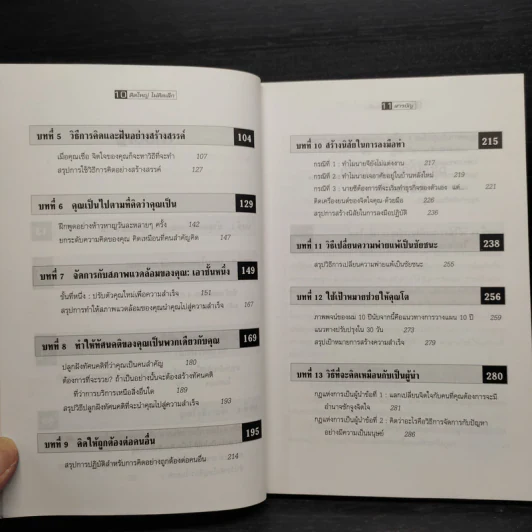 10 คิดใหญ่ ไม่คิดเล็ก
บทที่ 5 วิธีการคิดและฝันอย่างสร้างสรรค์ 104
เมื่อคุณเชื่อ จิตใจของคุณก็จะหาวิธีที่จะทำ 107
สรุปการใช้วิธีการคิดอย่างสร้างสรรค์ 127
บทที่ 6 คุณเป็นไปตามที่คิดว่าคุณเป็น 129
ฝึกพูดอย่างห้าวหาญวันละหลายๆ ครั้ง 142
ยกระดับความคิดของคุณ คิดเหมือนที่คนสำคัญคิด 147
บทที่ 7 จัดการกับสภาพแวดล้อมของคุณ: เอาชั้นหนึ่ง 149
ขั้นที่หนึ่ง : ปรับตัวคุณใหม่เพื่อความสำเร็จ 151
สรุปการทำให้สภาพแวดล้อมของคุณนำคุณไปสู่ความสำเร็จ 167
บทที่ 8 ทำให้ทัศนคติของคุณเป็นพวกเดียวกับคุณ 169
ปลูกฝังทัศนคติที่ว่าคุณเป็นคนสำคัญ 180
ต้องการที่จะรวย? ถ้าเป็นอย่างนั้นจะต้องสร้างทัศนคติ
ที่ว่าการบริการเหนือสิ่งอื่นใด 189
สรุปวิธีปลูกฝังทัศนคติที่จะนำคุณไปสู่ความสำเร็จ 193
บทที่ 9 คิดให้ถูกต้องต่อคนอื่น 195
สรุปการปฏิบัติสำหรับการคิดอย่างถูกต้องต่อคนอื่น 214
11 สารบัญ
บทที่ 10 สร้างนิสัยในการลงมือทำ 215
กรณีที่ 1 : ทำไมนายจียังไม่แต่งงาน 217
กรณีที่ 2 : ทำไมนายเจอาศัยอยู่ในบ้านหลังใหม่ 219
กรณีที่ 3 : นายซีต้องการที่จะเริ่มทำธุรกิจของตัวเอง แต่... 221
ติดเครื่องยนต์ของจิตใจคุณ-ด้วยมือ 226
สรุปสร้างนิสัยในการลงมือปฏิบัติ 236
บทที่ 11 วิธีเปลี่ยนความพ่ายแพ้เป็นชัยชนะ 238
สรุปวิธีการเปลี่ยนความพ่ายแพ้เป็นชัยชนะ 255
บทที่ 12 ใช้เป้าหมายช่วยให้คุณโต 256
ภาพพจน์ของผม 10 ปีนับจากนี้คือแนวทางการวางแผน 10 ปี
แนวทางปรับปรุงใน 30 วัน 273
สรุปเป้าหมายการสร้างความสำเร็จ 279
บทที่ 13 วิธีที่จะคิดเหมือนกับเป็นผู้นำ 280
กฎแห่งการเป็นผู้นำข้อที่ 1 : แลกเปลี่ยนจิตใจกับคนที่คุณต้องการจะมี
อำนาจชักจูงจิตใจ 281
กฎแห่งการเป็นผู้นำข้อที่ 2 : คิดว่าอะไรคือวิธีการจัดการกับปัญหา
อย่างมีความเป็นมนุษย์ 286